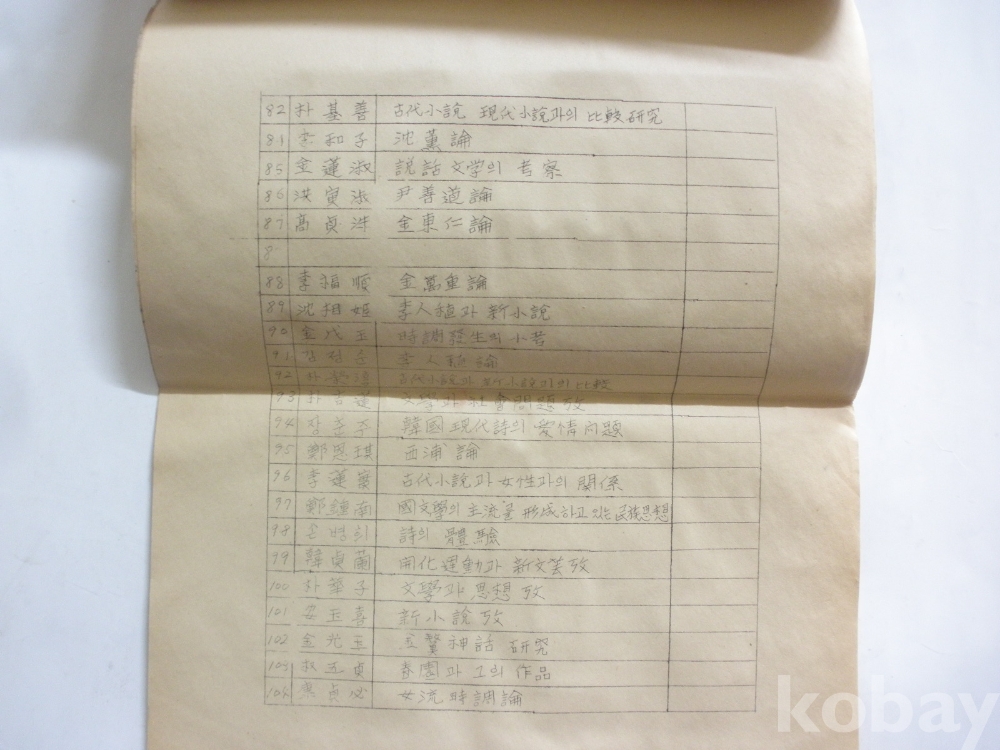 82 朴基善 古代小說 現代小說과의 比較硏究
81 李和子 沈薰論
85 金蓮淑 説話文学의 考察
86 洪寅淑 尹善道論
87 高貞洙 金東仁論
8
88 李福順 金萬重論
89 沈相姬 李人稙과 新小說
90 金 玉 時調發生의 小考
91 李人稙論
92 朴 古代小說과 新小說과의 比較
93 朴吉蓮 文學과 社會問題攷
94 장 韓國現代詩의 愛情问題
95 鄭恩琪 西浦論
96 李蓮 古代小說과 女性과의 関係
97 鄭 南 國文學의 主流를 形成하고 있는 民族思想
98 손명희 詩의 體驗
99 韓貞蘭 開化運動과 新文芸攷
100 朴華子 文學과 思想攷
101 安玉喜 新小說攷
102 金光玉 金鰲神話 硏究
103 貞 春園과 그의 作品
104 貞 女流時調論
kobay